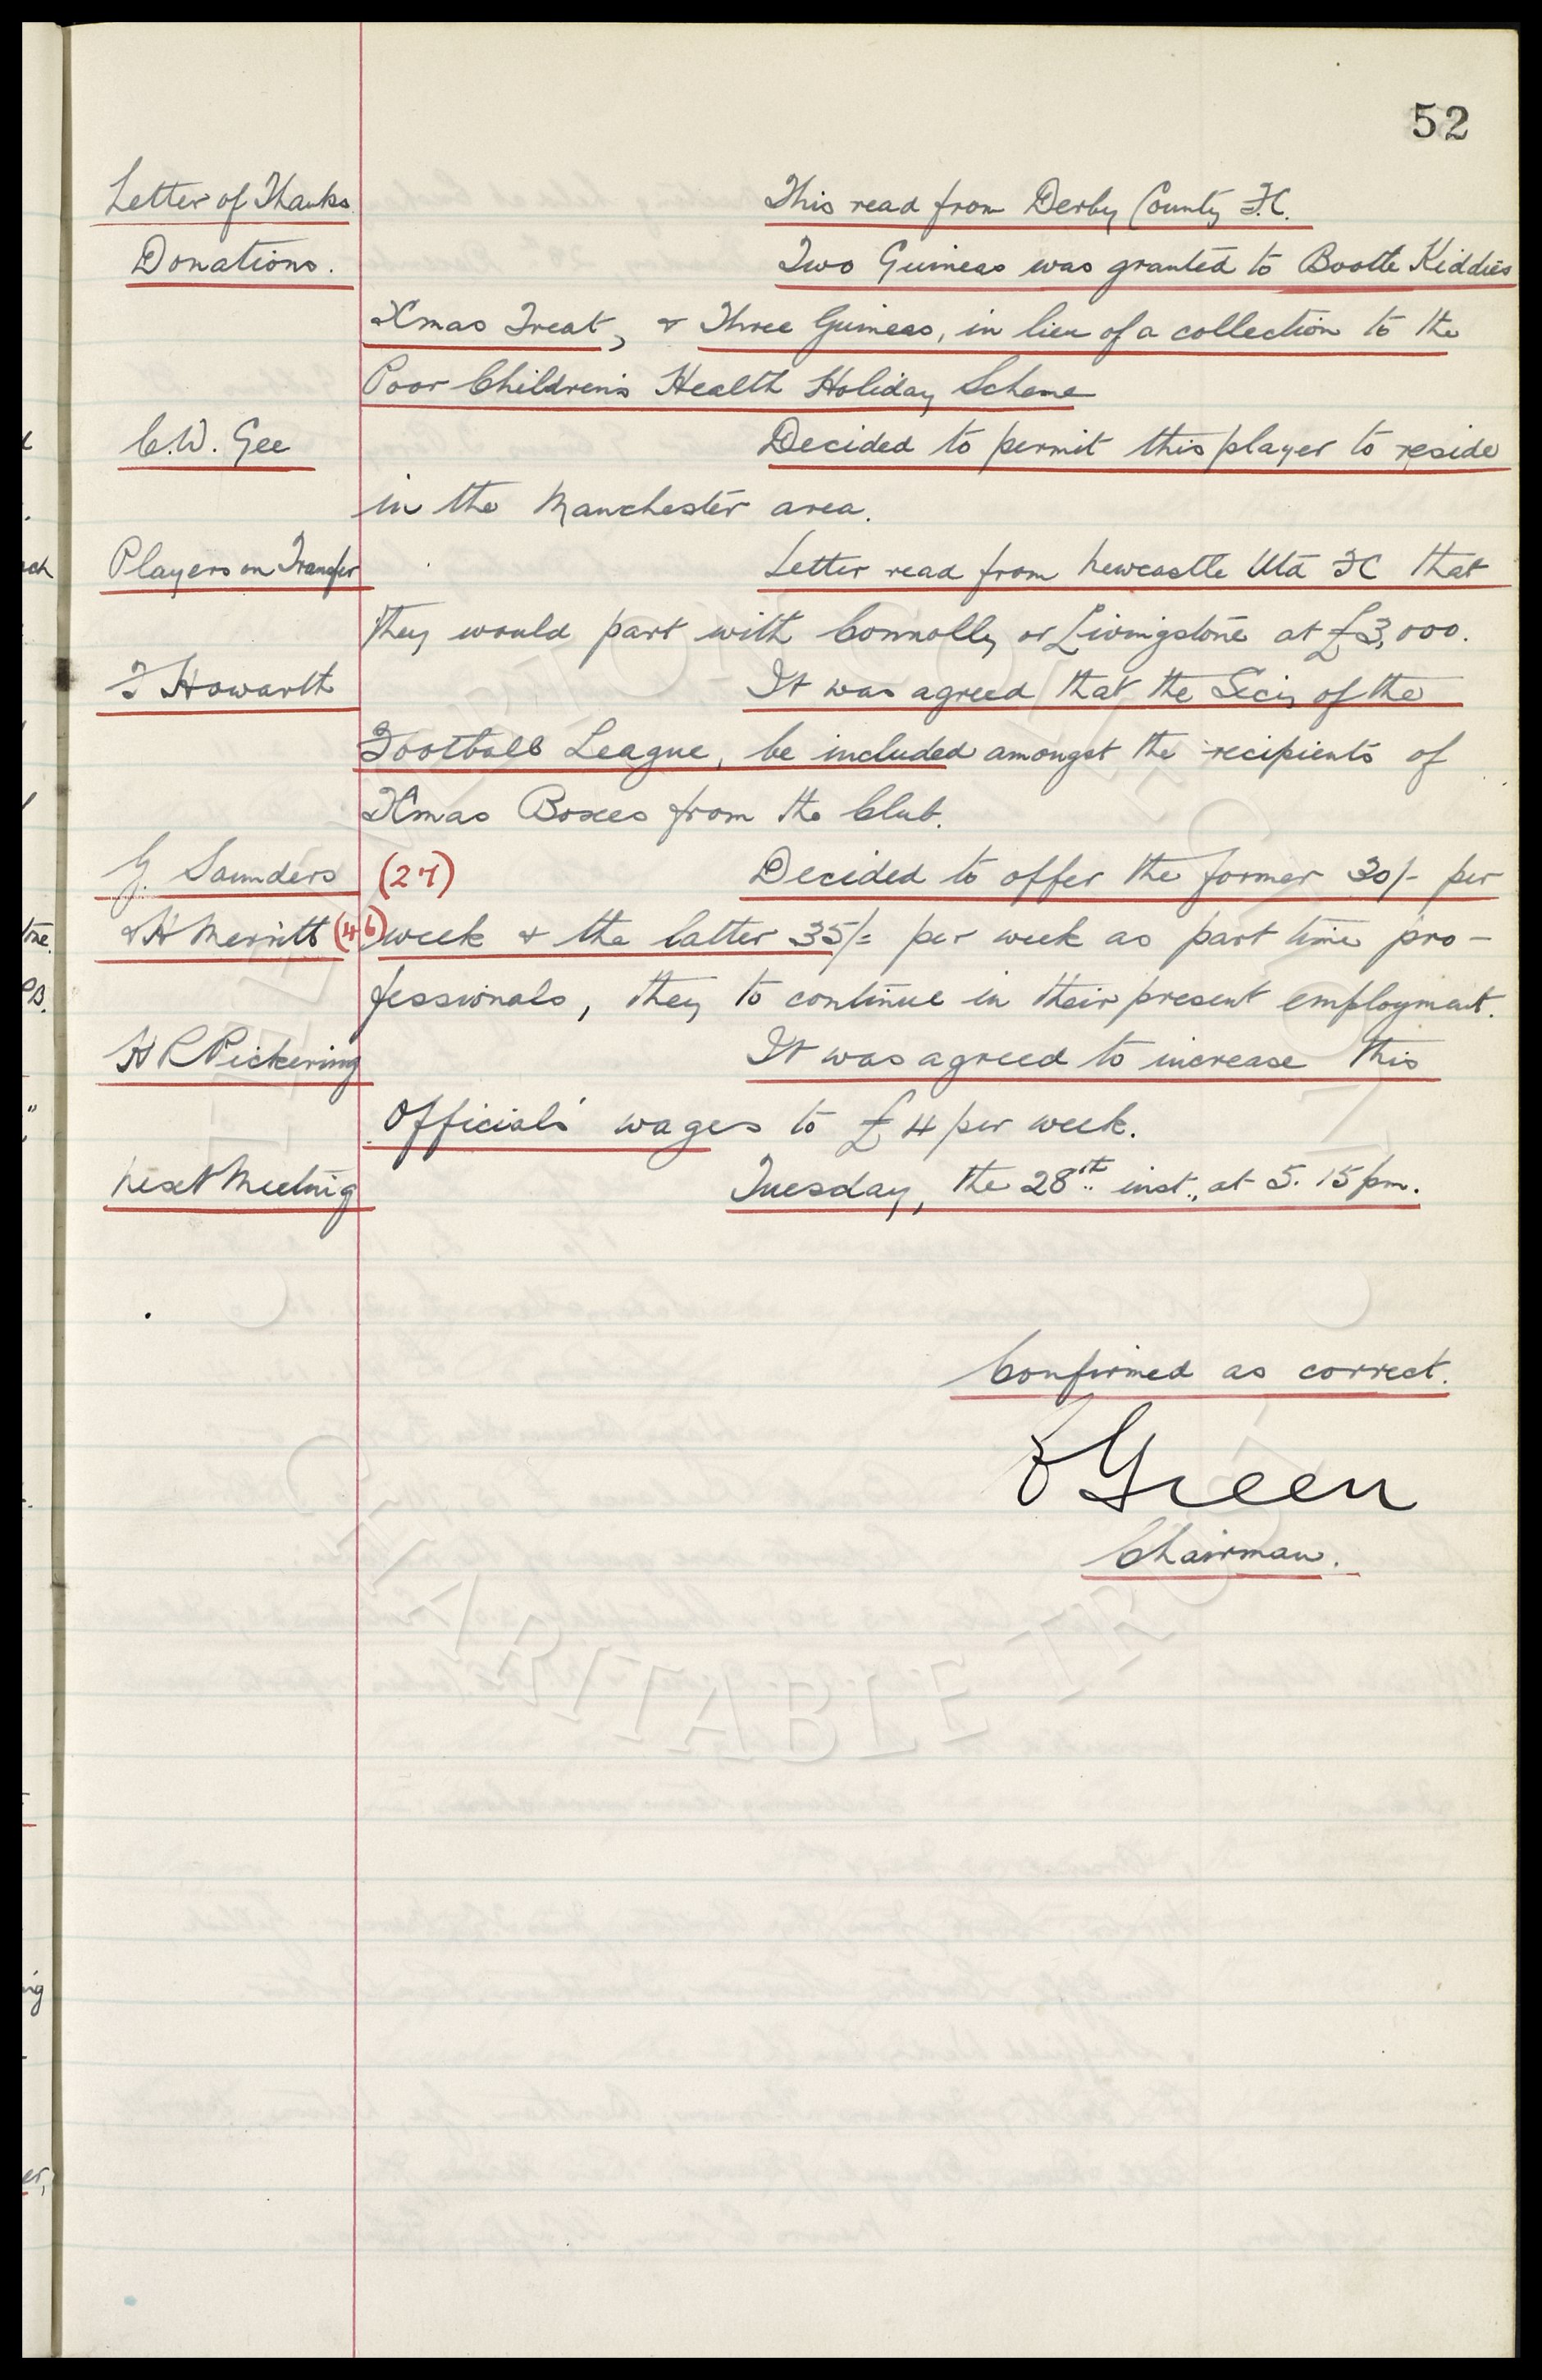 52
Letter of Thanks This read from Derby County F.C.
Donations. Two Guineas was granted to Bootle Kiddies
Xmas Treat, & Three Guineas, in lieu of a collection to the
Poor Children's Health Holiday Scheme
C.W. Gee Decided to permit this player to reside
in the Manchester area.
Players on Transfer Letter read from Newcastle Utd FC that
they would part with Connolly or Livingstone at £3,000.
F Howarth It was agreed that the Secy of the
Football League, be included amongst the recipients of
Xmas Boxes from the Club.
G. Saunders (27) Decided to offer the former 30/- per
& H Merritt (46) week & the latter 35/= per week as part time pro-
fessionals, they to continue in their present employment.
H R Pickering It was agreed to increase this
Officials' wages to £4 per week.
Next Meeting Tuesday, the 28th inst., at 5.15 pm.
Confirmed as correct.
Green
Chairman.